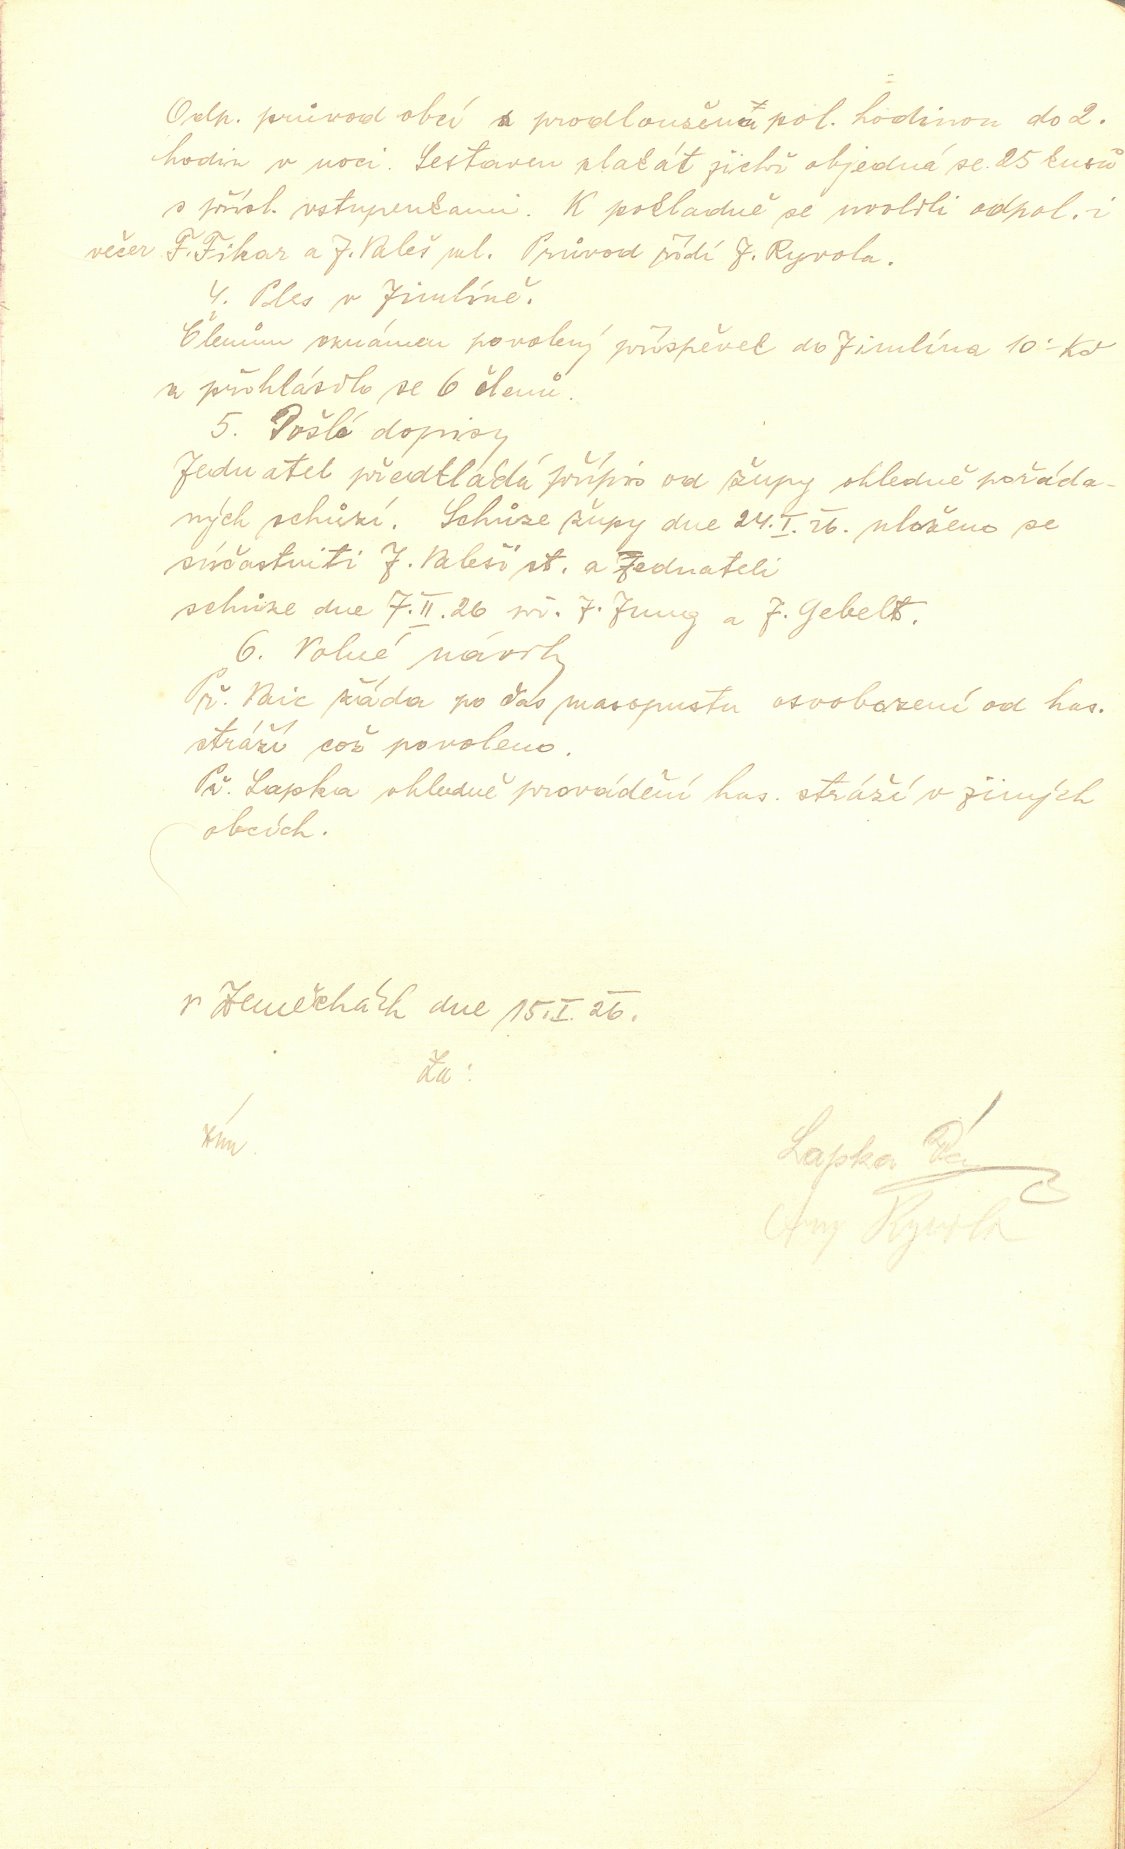 Odp. průvod obcí a prodloužená pol. hodinou do 2.
hodin v noci. Sestaven plakát jichž objedná se 25 kusů
s přísl. vstupenkami. K pokladně se uvolili odpol. i
večer F. Fikar a J. Valeš ml. Průvod řídí J. Ryvola.
4. Ples v Jimlíně.
Členům oznámen povolený příspěvek do Jimlína 10·- Kč
a přihlásilo se 6 členů.
5. Došlé dopisy
Jednatel předkládá přípis od župy ohledně pořáda-
ných schůzí. Schůze župy dne 24.I.26. uloženo se
súčastniti J. Valeši st. a Jednateli
schůze dne 7.II.26 př. J. Jung a J. Gebelt.
6. Volné návrhy
Př. Vaic žádá po čas masopustu osvobození od has.
stráží což povoleno.
Př. Lapka ohledně provádění has. stráží v jiných
obcích.
v Zeměchách dne 15.I.26.
Za:
Lapka
Ant Ryvola